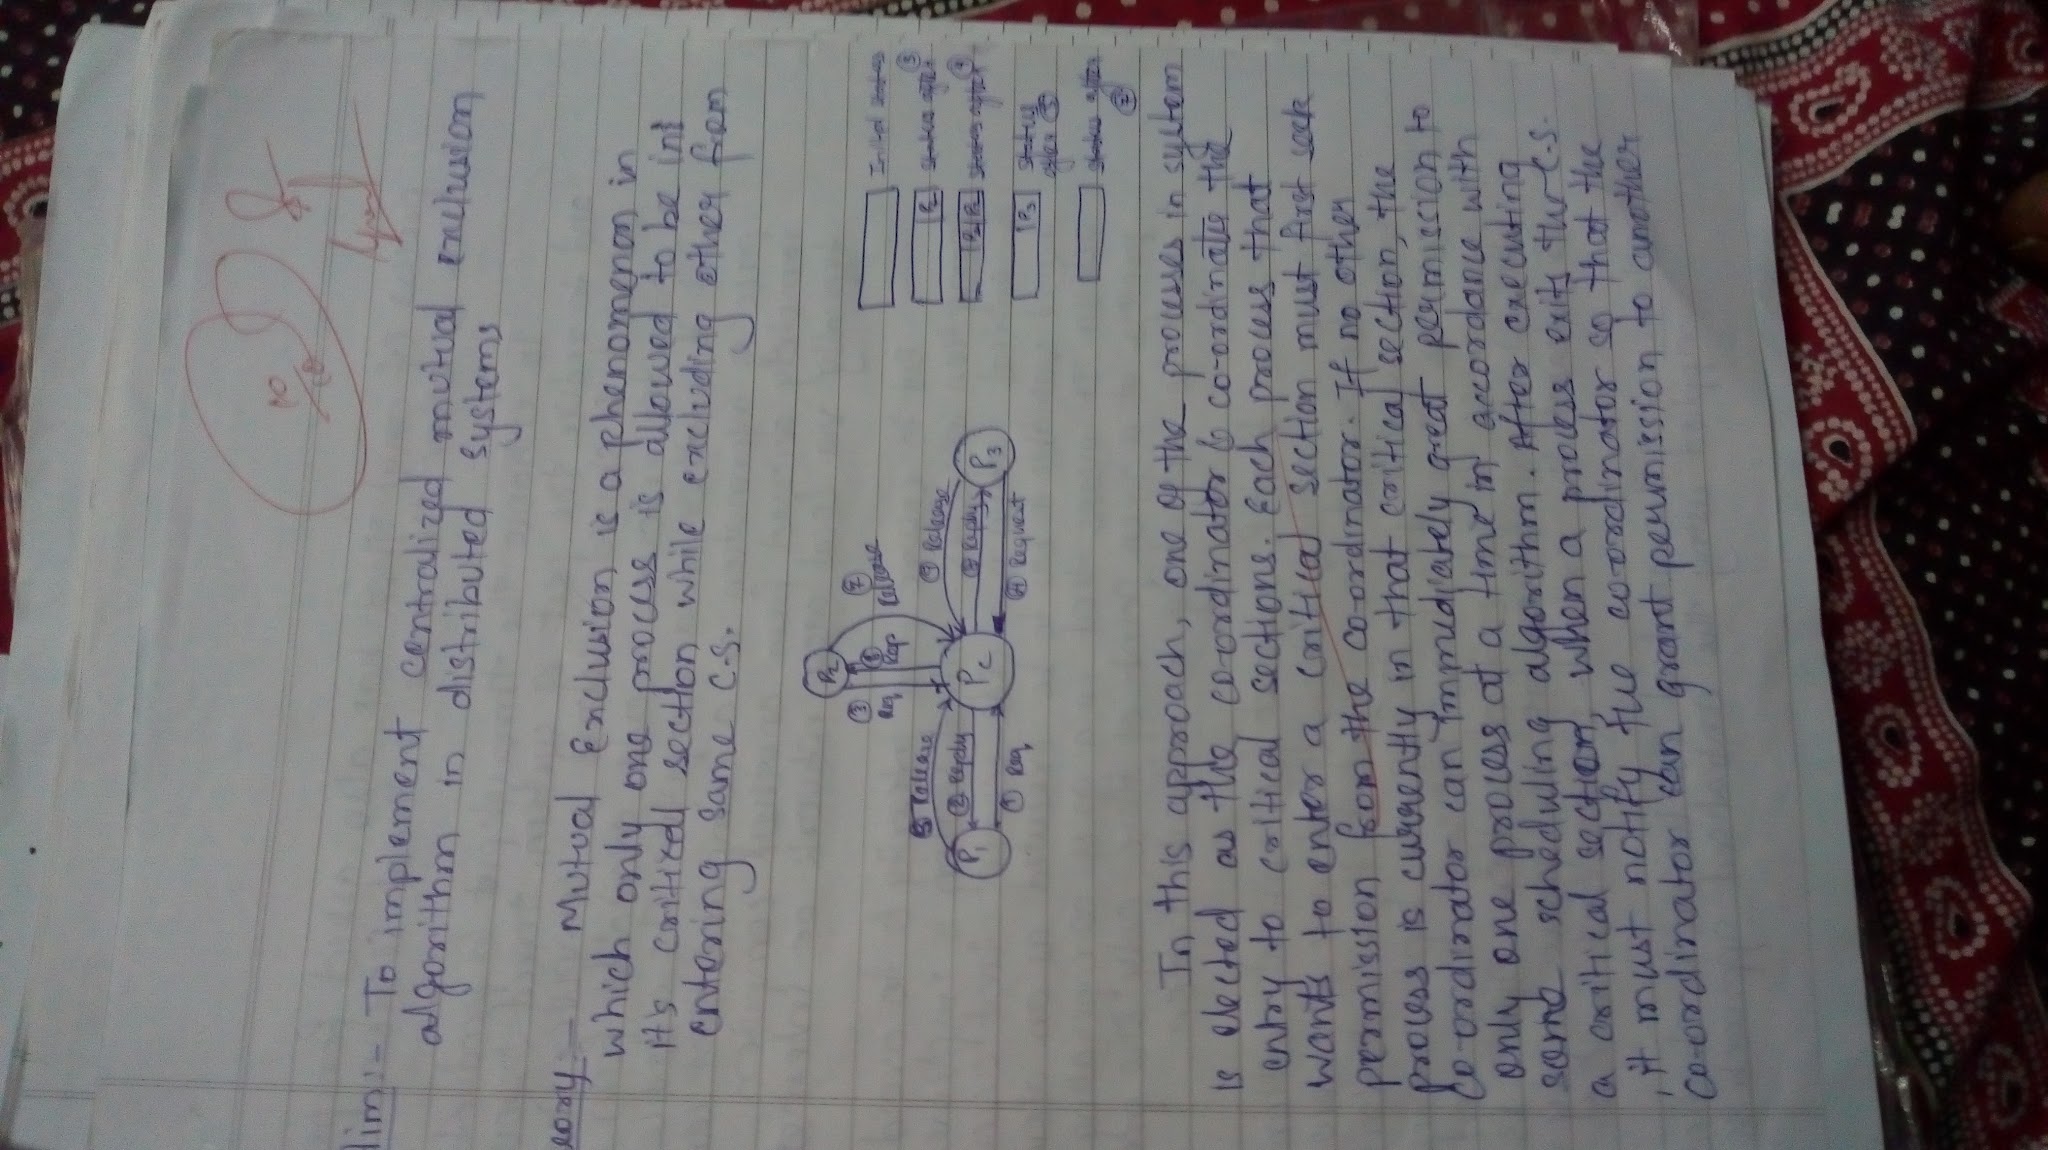 10/10
Aim :- To implement centralized mutual exclusion
algorithm in distributed systems
eory :- Mutual Exclusion is a phenomenon in
which only one process is allowed to be in
it's critical section while excluding other from
entering same C.S.
P2
③ Req
⑥ Rep
⑦ Release
P1
⑤ Release
② Reply
① Req
Pc
⑨ Release
Reply
④ Request
P3
Initial status
P2 Status after ③
P3 P2 Status after ④
P3 Status after ⑤
Status after ⑦
In this approach, one of the processes in system
is elected as the co-ordinator & co-ordinates the
entry to critical sections. Each process that
wants to enter a critical section must first seek
permission from the co-ordinator. If no other
process is currently in that critical section, the
co-ordinator can immediately great permission to
only one process at a time in accordance with
some scheduling algorithm. After executing
a critical section, when a process exits the C.S.
, it must notify the co-ordinator so that the
co-ordinator can grant permission to another